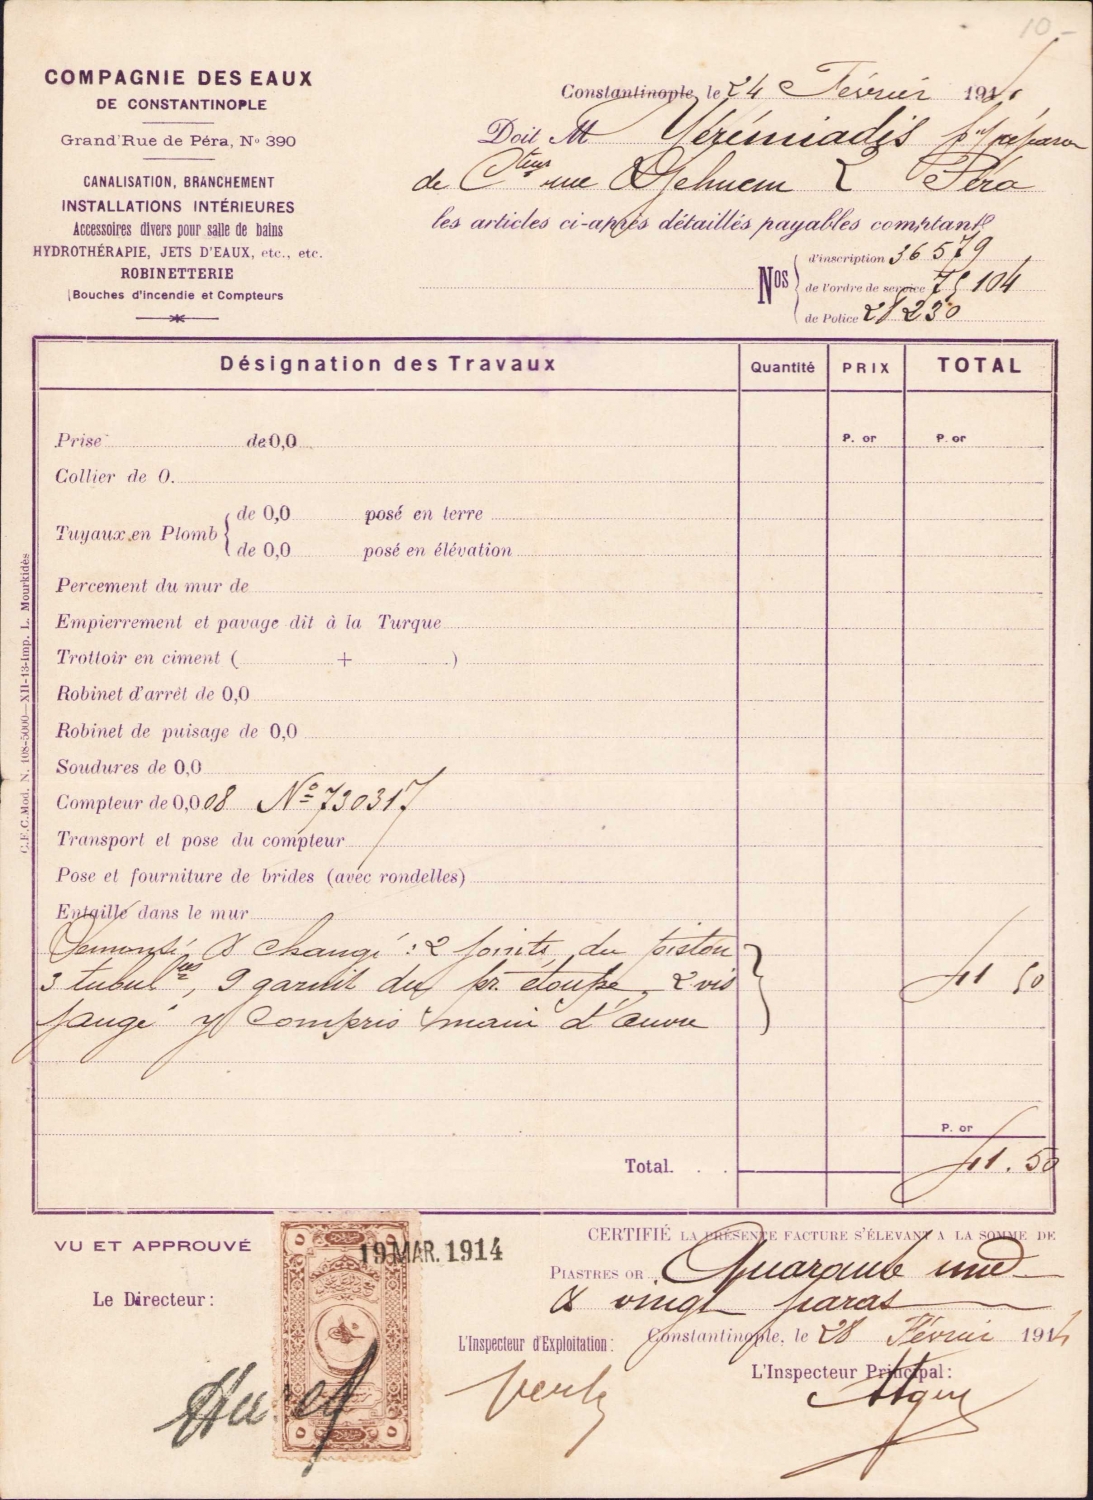 10.-
COMPAGNIE DES EAUX
DE CONSTANTINOPLE
Grand'Rue de Péra, No 390
CANALISATION, BRANCHEMENT
INSTALLATIONS INTÉRIEURES
Accessoires divers pour salle de bains
HYDROTHÉRAPIE, JETS D'EAUX, etc., etc.
ROBINETTERIE
Bouches d'incendie et Compteurs
Constantinople, le 24 Février 191
Doit M Yérémiadis
de Cteur rue 2 Péra
les articles ci-après détaillés payables comptant
Nos
d'inscription 36579
de l'ordre de service 75104
de Police 28230
Désignation des Travaux Quantité PRIX TOTAL
Prise de 0,0 P. or P. or
Collier de 0.
Tuyaux en Plomb
de 0,0 posé en terre
de 0,0 posé en élévation
Percement du mur de
Empierrement et pavage dit à la Turque
Trottoir en ciment ( + )
Robinet d'arrêt de 0,0
Robinet de puisage de 0,0
Soudures de 0,0
Compteur de 0,008 No 730317
Transport et pose du compteur
Pose et fourniture de brides (avec rondelles)
Entaille dans le mur
Demonté & changé : 2 joints du piston
3 tubul, 9 garnit du pr. étoupe, 2 vis 41 50
jaugé y compris main d'œuvre
P. or
Total. . . 41.50
C.E.C. Mod. N. 108-5000—XII-13-Imp. L. Mourkidès
VU ET APPROUVÉ
Le Directeur:
19 MAR. 1914
CERTIFIÉ LA PRÉSENTE FACTURE S'ÉLEVANT A LA SOMME DE
PIASTRES OR Quarante une
& vingt paras
Constantinople, le 28 Février 1914
L'Inspecteur d'Exploitation:
L'Inspecteur Principal: